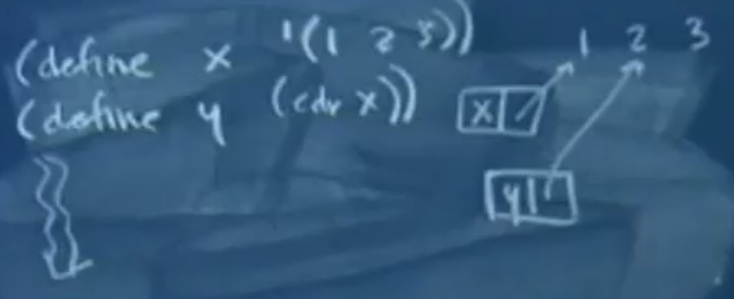 (define x '(1 2 3))
(define y (cdr x))
1 2 3
x
y